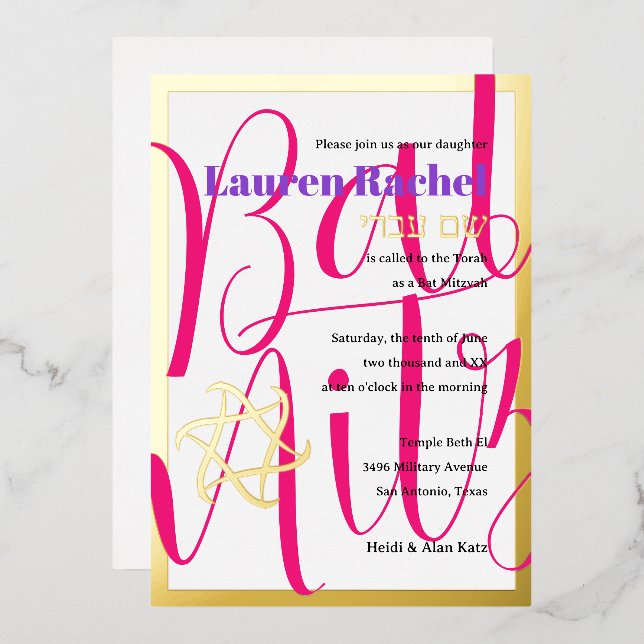 Bat
Mitz
Please join us as our daughter
Lauren Rachel
שם עברי
is called to the Torah
as a Bat Mitzvah
Saturday, the tenth of June
two thousand and XX
at ten o'clock in the morning
Temple Beth El
3496 Military Avenue
San Antonio, Texas
Heidi & Alan Katz